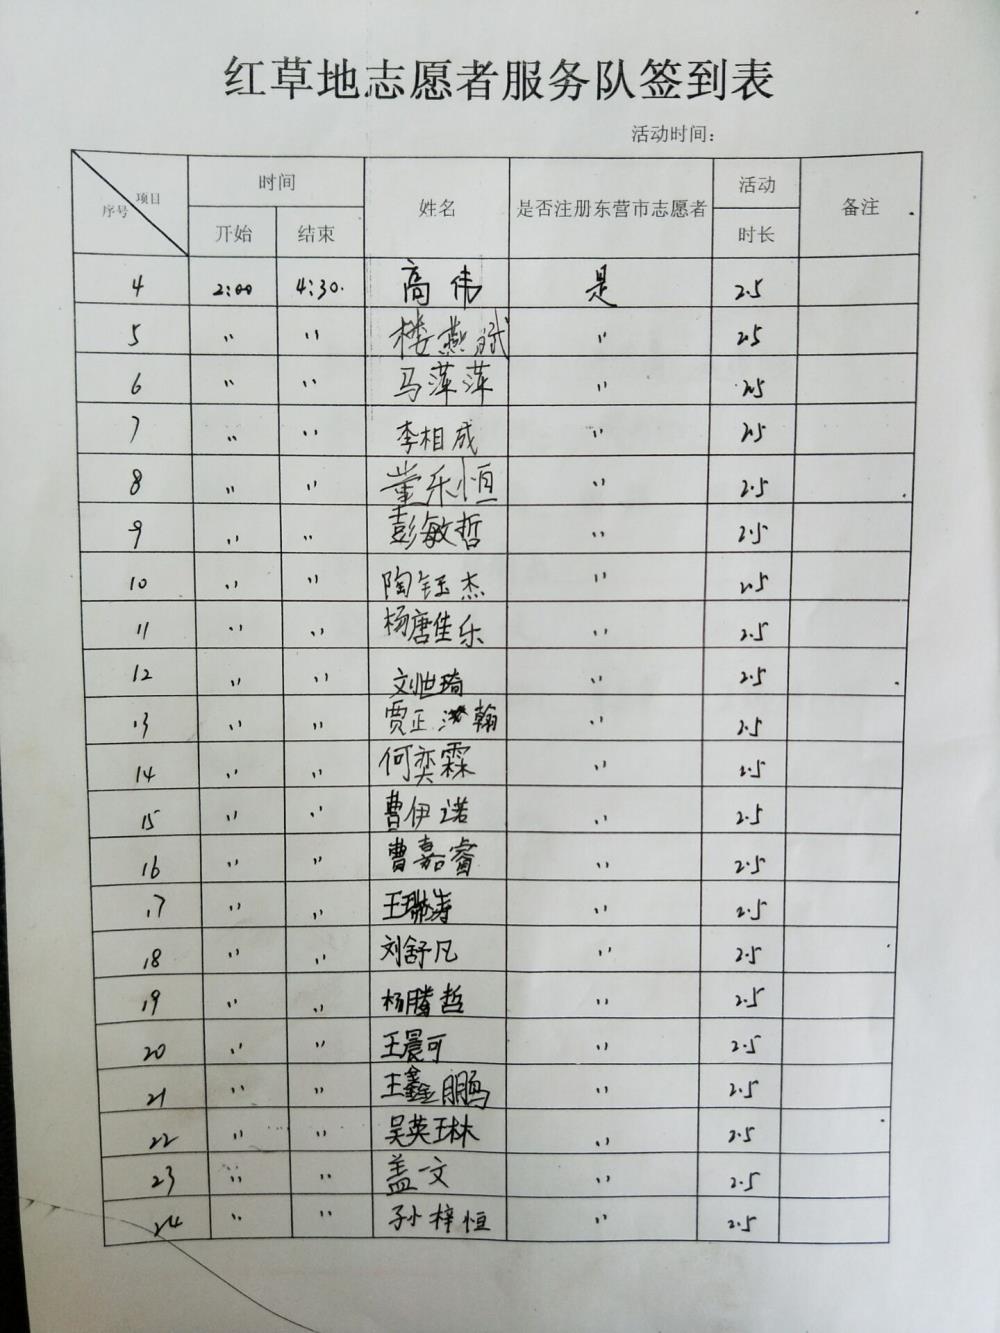 红草地志愿者服务队签到表
活动时间：
项目 序号 时间 姓名 是否注册东营市志愿者 活动 备注
开始 结束 时长
4 2:00 4:30. 高伟 是 2.5
5 〃 〃 楼燕斌 〃 2.5
6 〃 〃 马萍萍 〃 2.5
7 〃 〃 李相成 〃 2.5
8 〃 〃 董乐恒 〃 2.5
9 〃 〃 彭敏哲 〃 2.5
10 〃 〃 陶钰杰 〃 2.5
11 〃 〃 杨唐佳乐 〃 2.5
12 〃 〃 刘世琦 〃 2.5
13 〃 〃 贾正 翰 〃 2.5
14 〃 〃 何奕霖 〃 2.5
15 〃 〃 曹伊诺 〃 2.5
16 〃 〃 曹嘉睿 〃 2.5
17 〃 〃 王 涛 〃 2.5
18 〃 〃 刘舒凡 〃 2.5
19 〃 〃 杨腾哲 〃 2.5
20 〃 〃 王晨可 〃 2.5
21 〃 〃 王鑫鹏 〃 2.5
22 〃 〃 吴英琳 〃 2.5
23 〃 〃 盖一文 〃 2.5
24 〃 〃 孙梓恒 〃 2.5